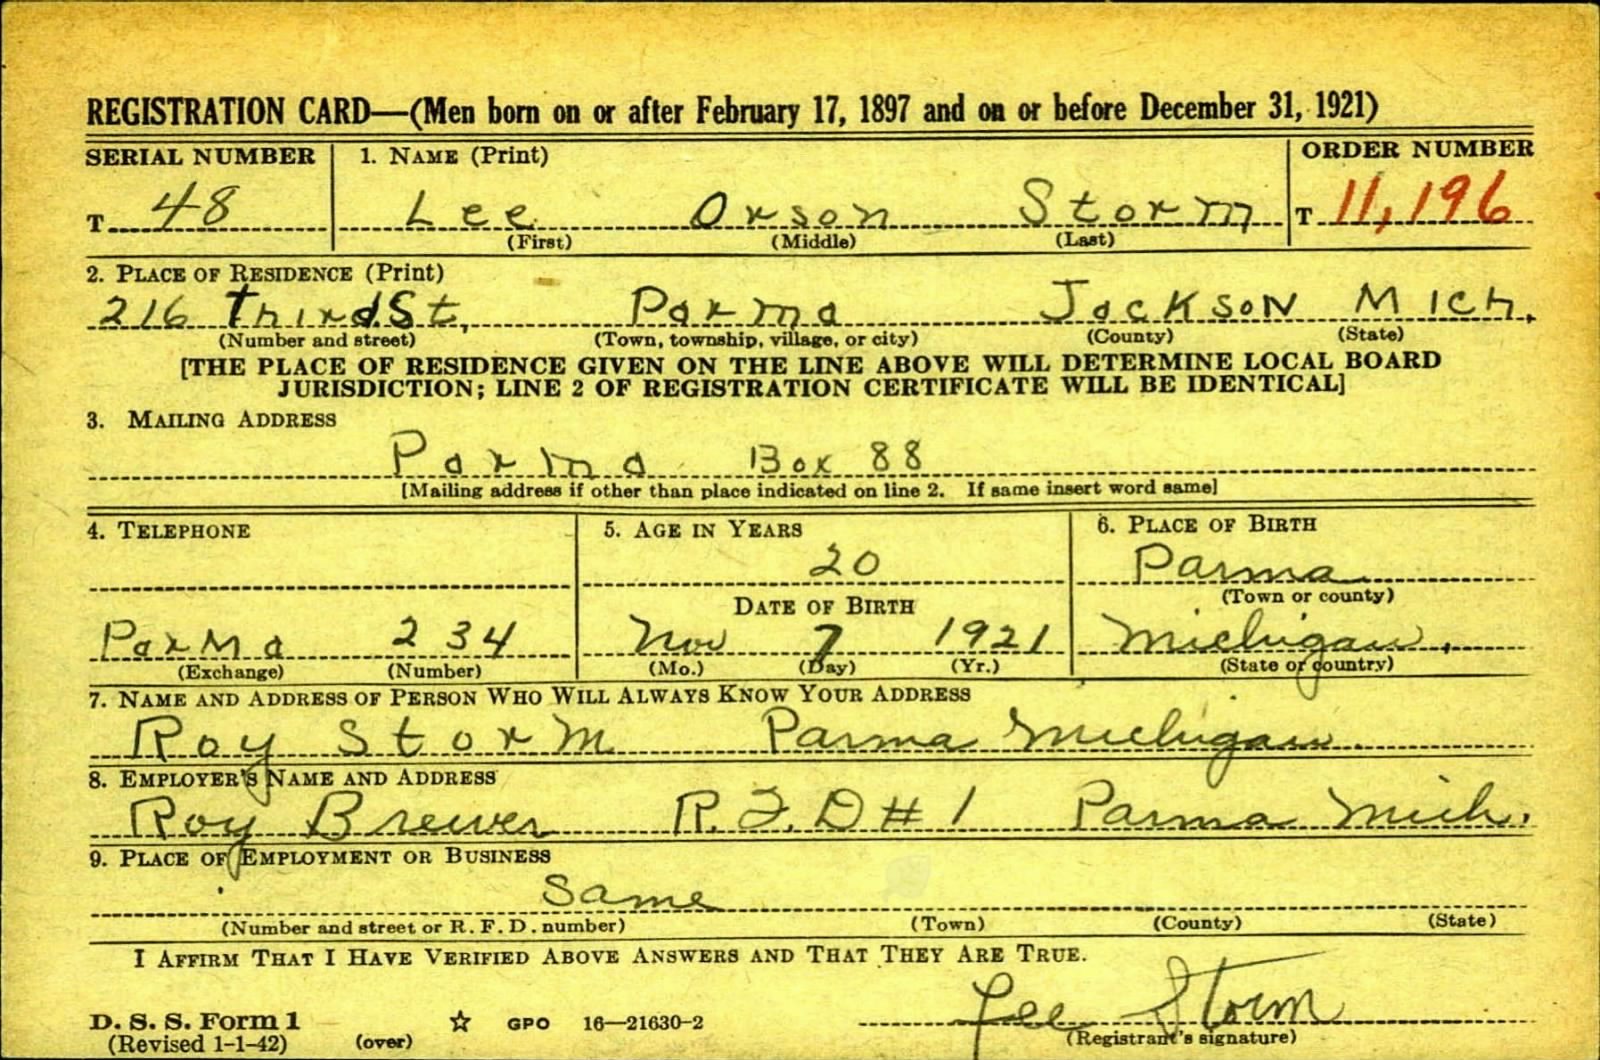 REGISTRATION CARD—(Men born on or after February 17, 1897 and on or before December 31, 1921)
SERIAL NUMBER 1. NAME (Print) ORDER NUMBER
T 48 Lee Orson Storm T 11,196
(First) (Middle) (Last)
2. PLACE OF RESIDENCE (Print)
216 Third St, Parma Jackson Mich.
(Number and street) (Town, township, village, or city) (County) (State)
[THE PLACE OF RESIDENCE GIVEN ON THE LINE ABOVE WILL DETERMINE LOCAL BOARD
JURISDICTION; LINE 2 OF REGISTRATION CERTIFICATE WILL BE IDENTICAL]
3. MAILING ADDRESS
Parma Box 88
[Mailing address if other than place indicated on line 2. If same insert word same]
4. TELEPHONE 5. AGE IN YEARS 6. PLACE OF BIRTH
20 Parma
DATE OF BIRTH (Town or county)
Parma 234 Nov 7 1921 Michigan.
(Exchange) (Number) (Mo.) (Day) (Yr.) (State or country)
7. NAME AND ADDRESS OF PERSON WHO WILL ALWAYS KNOW YOUR ADDRESS
Roy Storm Parma Michigan.
8. EMPLOYER'S NAME AND ADDRESS
Roy Brewer R.F.D # 1 Parma Mich.
9. PLACE OF EMPLOYMENT OR BUSINESS
Same
(Number and street or R. F. D. number) (Town) (County) (State)
I AFFIRM THAT I HAVE VERIFIED ABOVE ANSWERS AND THAT THEY ARE TRUE.
Lee Storm
D. S. S. Form 1 GPO 16—21630-2
(Revised 1-1-42) (over) (Registrant's signature)